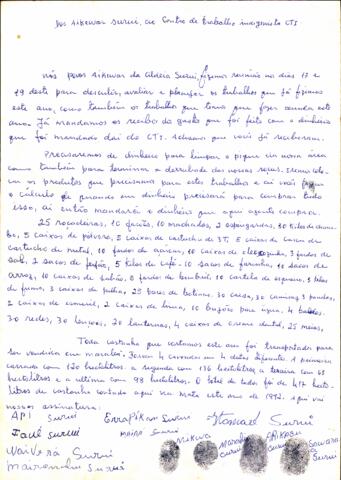 Dos Aikewar Surui, ao Centro de trabalho indigenista CTI
nós povos Aikewar da aldeia Surui, fizemos reunião nos dias 17 e
19 deste para descutir, avaliar e planejar os trabalhos que já fizemos
este ano, como também os trabalhos que temos que fazer ainda este
ano. Já mandamos os recibo do gasto que foi feito com o dinheiro
que foi mandado daí do CTI. Achamos que vocês já receberam.
Precisaremos de dinheiro para limpar o pique em nossa área
como também para terminar a derrubada das nossas roças.
os produtos que precisamos para estes trabalhos e aí vocês
o cálculo de quando em dinheiro precisará para comprar tudo
isso, aí então mandará o dinheiro que aqui agente compra.
25 roçadeiras, 10 facões, 10 machados, 2 espingardas, 20 kilos de chumbo, 5 caixas de pólvora, 5 caixas de cartucho de 37, 5 caixas de
cartucho de metal, 10 fardos de açucar, 10 caixas de óleo, 3 fardos de
sal, 2 sacos de feijão, 5 kilos de café, 10 sacos de farinha, 11 sacos de
arroz, 10 caixas de sabão, 2 fardos de bombril, 10 cartela de isqueiro, 5 kilos
de fumo, 3 caixas de palha, 25 pares de botina, 30 calça, 30 camisas, 3 panelas,
2 caixas de esmeril, 2 caixas de lima, 10 bujões para água, 4 baldes,
30 redes, 30 lençois, 20 lanternas, 4 caixas de creme dental, 25 meias,
Toda castanha que cortamos este ano foi transportada para
ser vendida em marabá. Foram 4 carradas em 4 datas diferente. A primeira
carrada com 120 hectolitros, a segunda com 136 hectolitros, a terceira com 63
hectolitros e a ultima com 98 hectolitros. O total de todos foi de 417 hectolitros de castanha cortado aqui na mata este ano de 1992. Aqui vai
nossas assinatura:
API Surui
Errapikan Surui
Ismael Surui
Taué Surui
MAIRÁ Surui
Mikwa
Surui
Arikasu
Surui
Sawara
Surui
Waiverá Surui
Mairenhum Surui